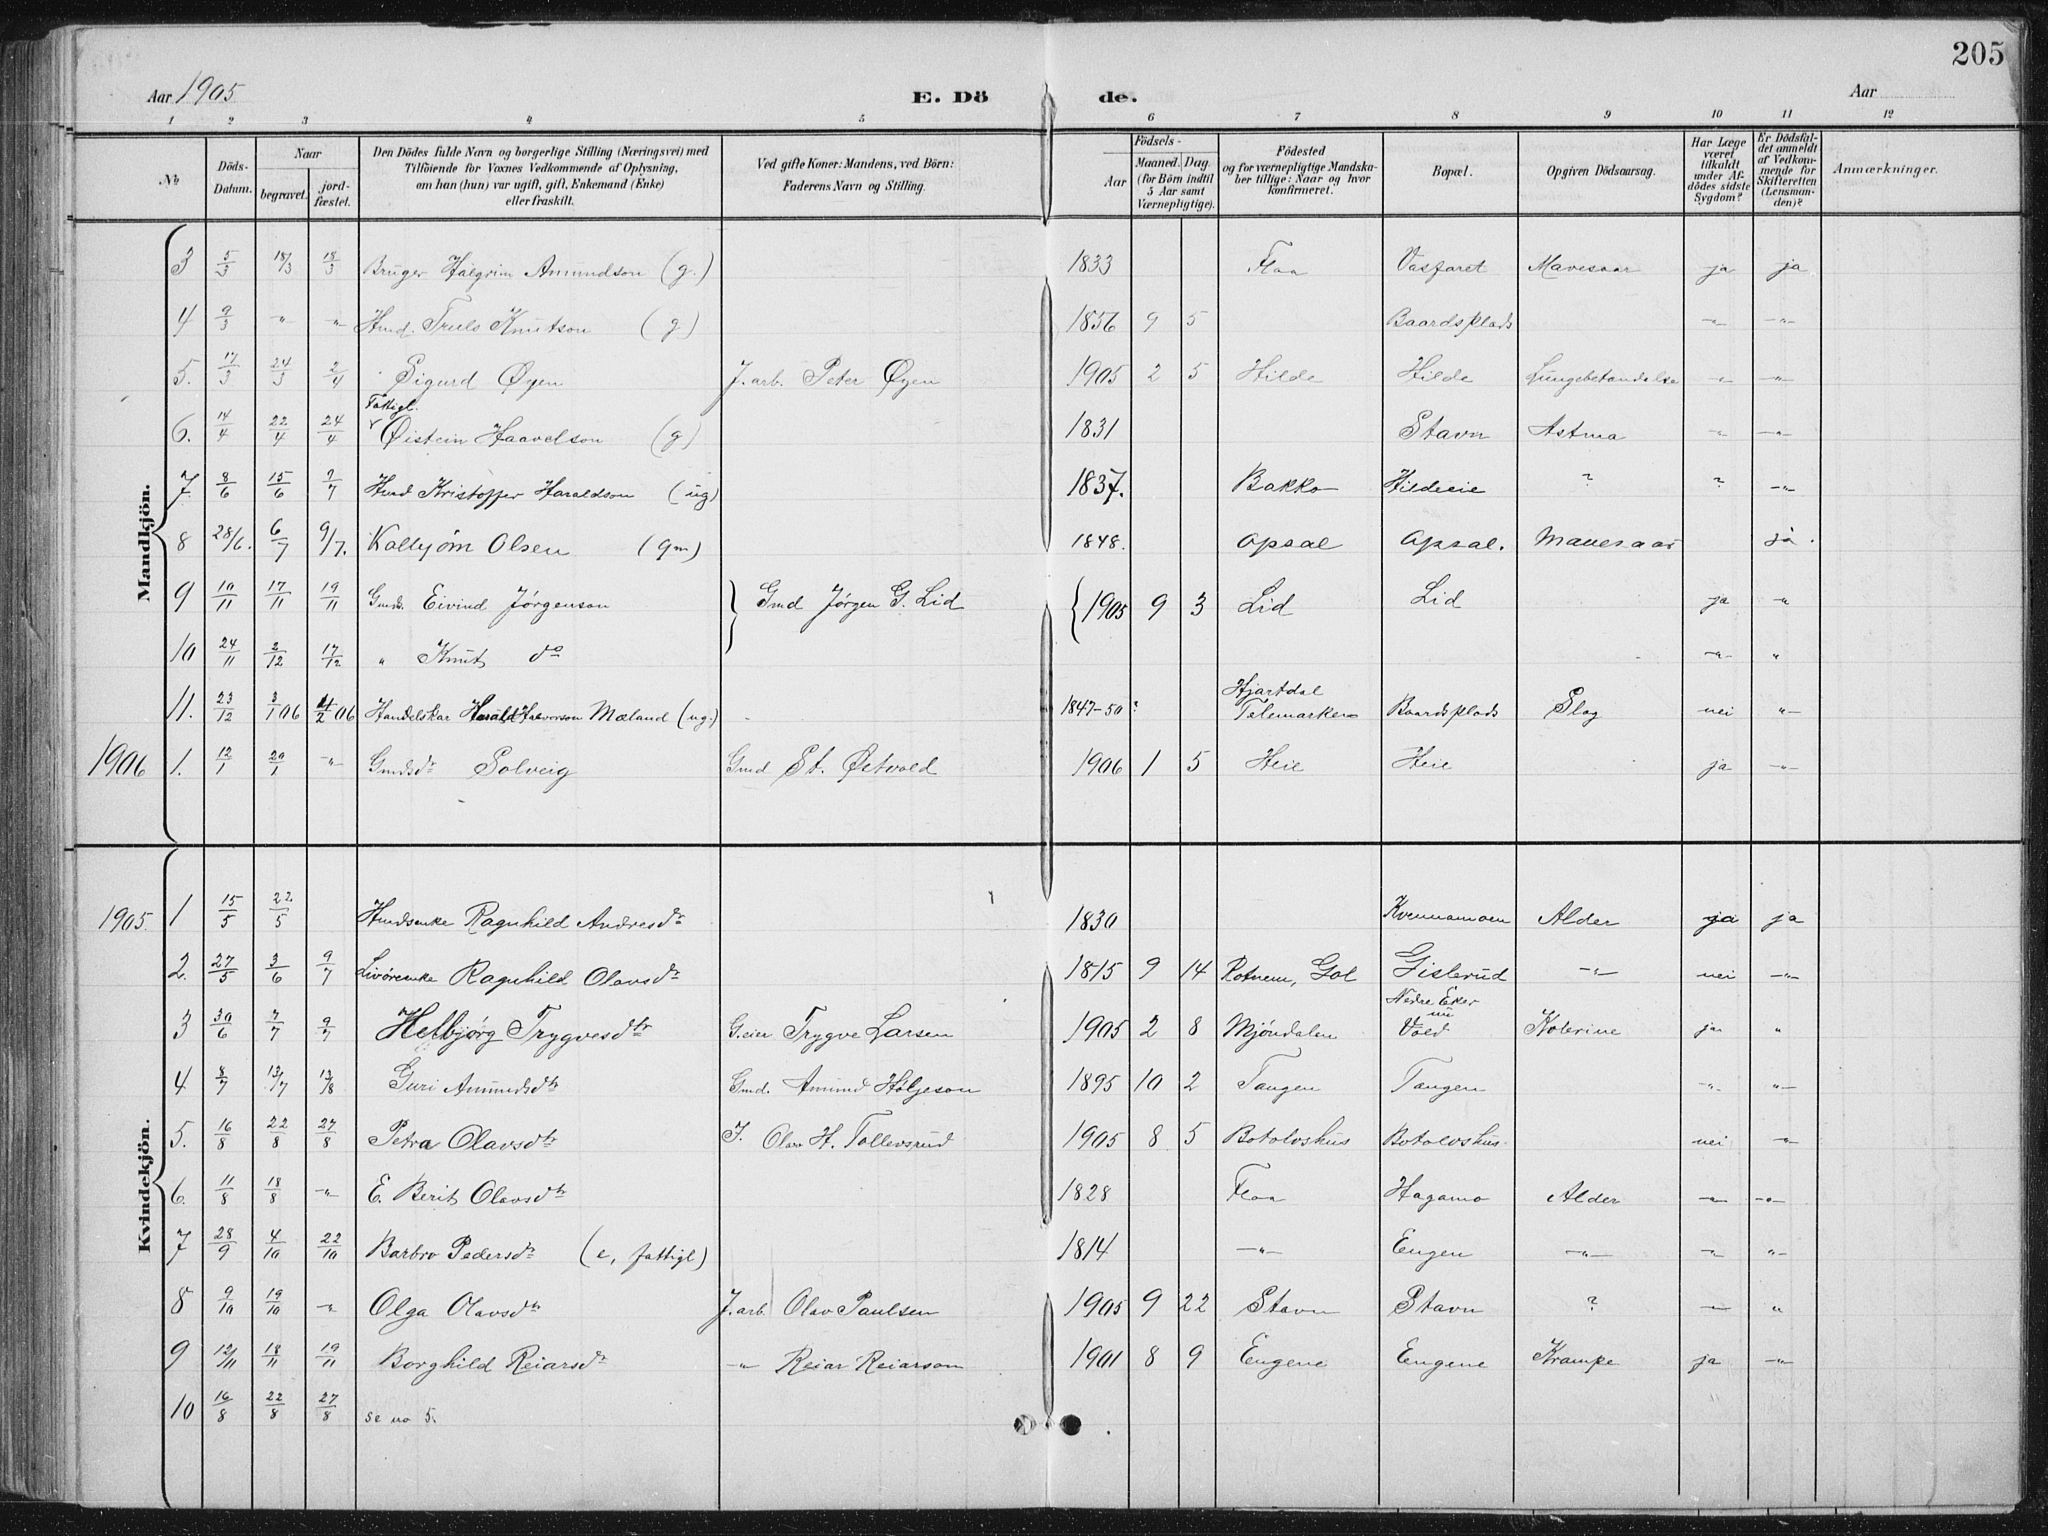 205
Aar 1905 E. Dö de. Aar
1 2 3 4 5 6 7 8 9 10 11 12
No. Döds-Datum. Naar begravet. jordfæstet. Den Dödes fulde Navn og borgerlige Stilling (Næringsvei) med Tilföiende for Voxnes Vedkommende af Oplysning, om han (hun) var ugift, gift, Enkemand (Enke) eller fraskilt. Ved gifte Koner: Mandens, ved Börn: Faderens Navn og Stilling. Födsels- Aar Maaned. Dag. (for Börn indtil 5 Aar samt Værnepligtige). Födested og for værnepligtige Mandskaber tillige: Naar og hvor konfirmeret. Bopæl. Opgiven Dödsaarsag. Har Læge været tilkaldt under Afdödes sidste Sygdom? Er Dödsfaldet anmeldt af Vedkommende for Skifteretten (Lensmanden)? Anmærkninger.
Mandkjön.
3 5/3 18/3 18/3 Bruger Halgrim Amundson (g.) 1833 Flaa Vasfaret Mavesaar ja ja
4 9/3 " " Hmd. Truls Knutson (g) 1856 9 5 Baardsplads -"- -"-
5. 17/3 24/3 2/4 Sigurd Øyen J. arb. Peter Øyen 1905 2 5 Hilde Hilde Lungebetændelse -"- -"-
6. 14/4 22/4 24/4 Fattigl. Øistein Haavelson (g) 1831 Stavn Astma -"- -"-
7. 8/6 15/6 9/7 Hmd Kristoffer Haraldson (ug) 1837. Bakko Hildeeie ? ? -"-
8 28/6. 6/7 9/7. Kolbjörn Olsen (gm) 1848. Opsal Opsal. Mavesaar ja.
9 10/11 17/11 19/11 Gmds. Eivind Jørgenson } Gmd Jørgen G. Lid { 1905 9 3 Lid Lid ja "
10 24/11 2/12 17/12 " Knut do -"- "
11. 23/12 3/1 06 4/2 06 Handelskar Harald Halvorson Mæland (ug.) 1847-50? Hjartdal Telemarken Baardsplads Slag nei -"-
1906 1. 12/1 20/1 -"- Gmdsdr Solveig Gmd St. Østvold 1906 1 5 Heie Heie ja -"-
Kvindekjön.
1905. 1 15/5 22/5 Hmdsenke Ragnhild Andresdr 1830 Kvennamoen Alder ja ja
2. 27/5 3/6 9/7 Livörenke Ragnhild Olavsdr 1815 9 14 Rotnem, Gol Gislerud -"- nei -"-
3 30/6 7/7 9/7 Helbjørg Trygvesdtr G.eier Trygve Larsen 1905 2 8 Mjöndalen Nedre Eker nu Vold Kolerine ja "
4 8/7 13/7 13/8 Guri Amundsdtr Gmd. Amund Hølgeson 1895 10 2 Tangen Tangen -"- -"-
5. 16/8 22/8 27/8 Petra Olavsdtr J. Olav H. Tollevsrud 1905 8 5 Botolvshus Botolvshus nei -"-
6. 11/8 18/8 -"- E. Berit Olavsdtr 1828 Flaa Hagamo Alder -"- -"-
7 28/9 4/10 22/10 Barbro Pedersdr (e, fattigl) 1814 -"- Engen -"- -"- -"-
8 9/10 19/10 -"- Olga Olavsdtr J. arb. Olav Paulsen 1905 9 22 Stavn Stavn ? -"- "
9 12/11 18/11 19/11 Borghild Reiarsdr -"- Reiar Reiarson 1901 8 9 Eugene Eugene Krampe ja -"-
10 16/8 22/8 27/8 se no 5.